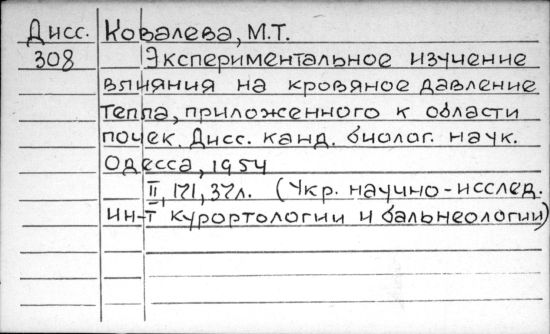 Дисс. Ковалева, М.Т.
308 Экспериментальное изучение
влияния на кровяное давление
тепла, приложенного к области
почек. Дисс. канд. биолог. наук.
Одесса, 1954
II, 171, 37л. (Укр. научно-исслед.
ин-т курортологии и бальнеологии)